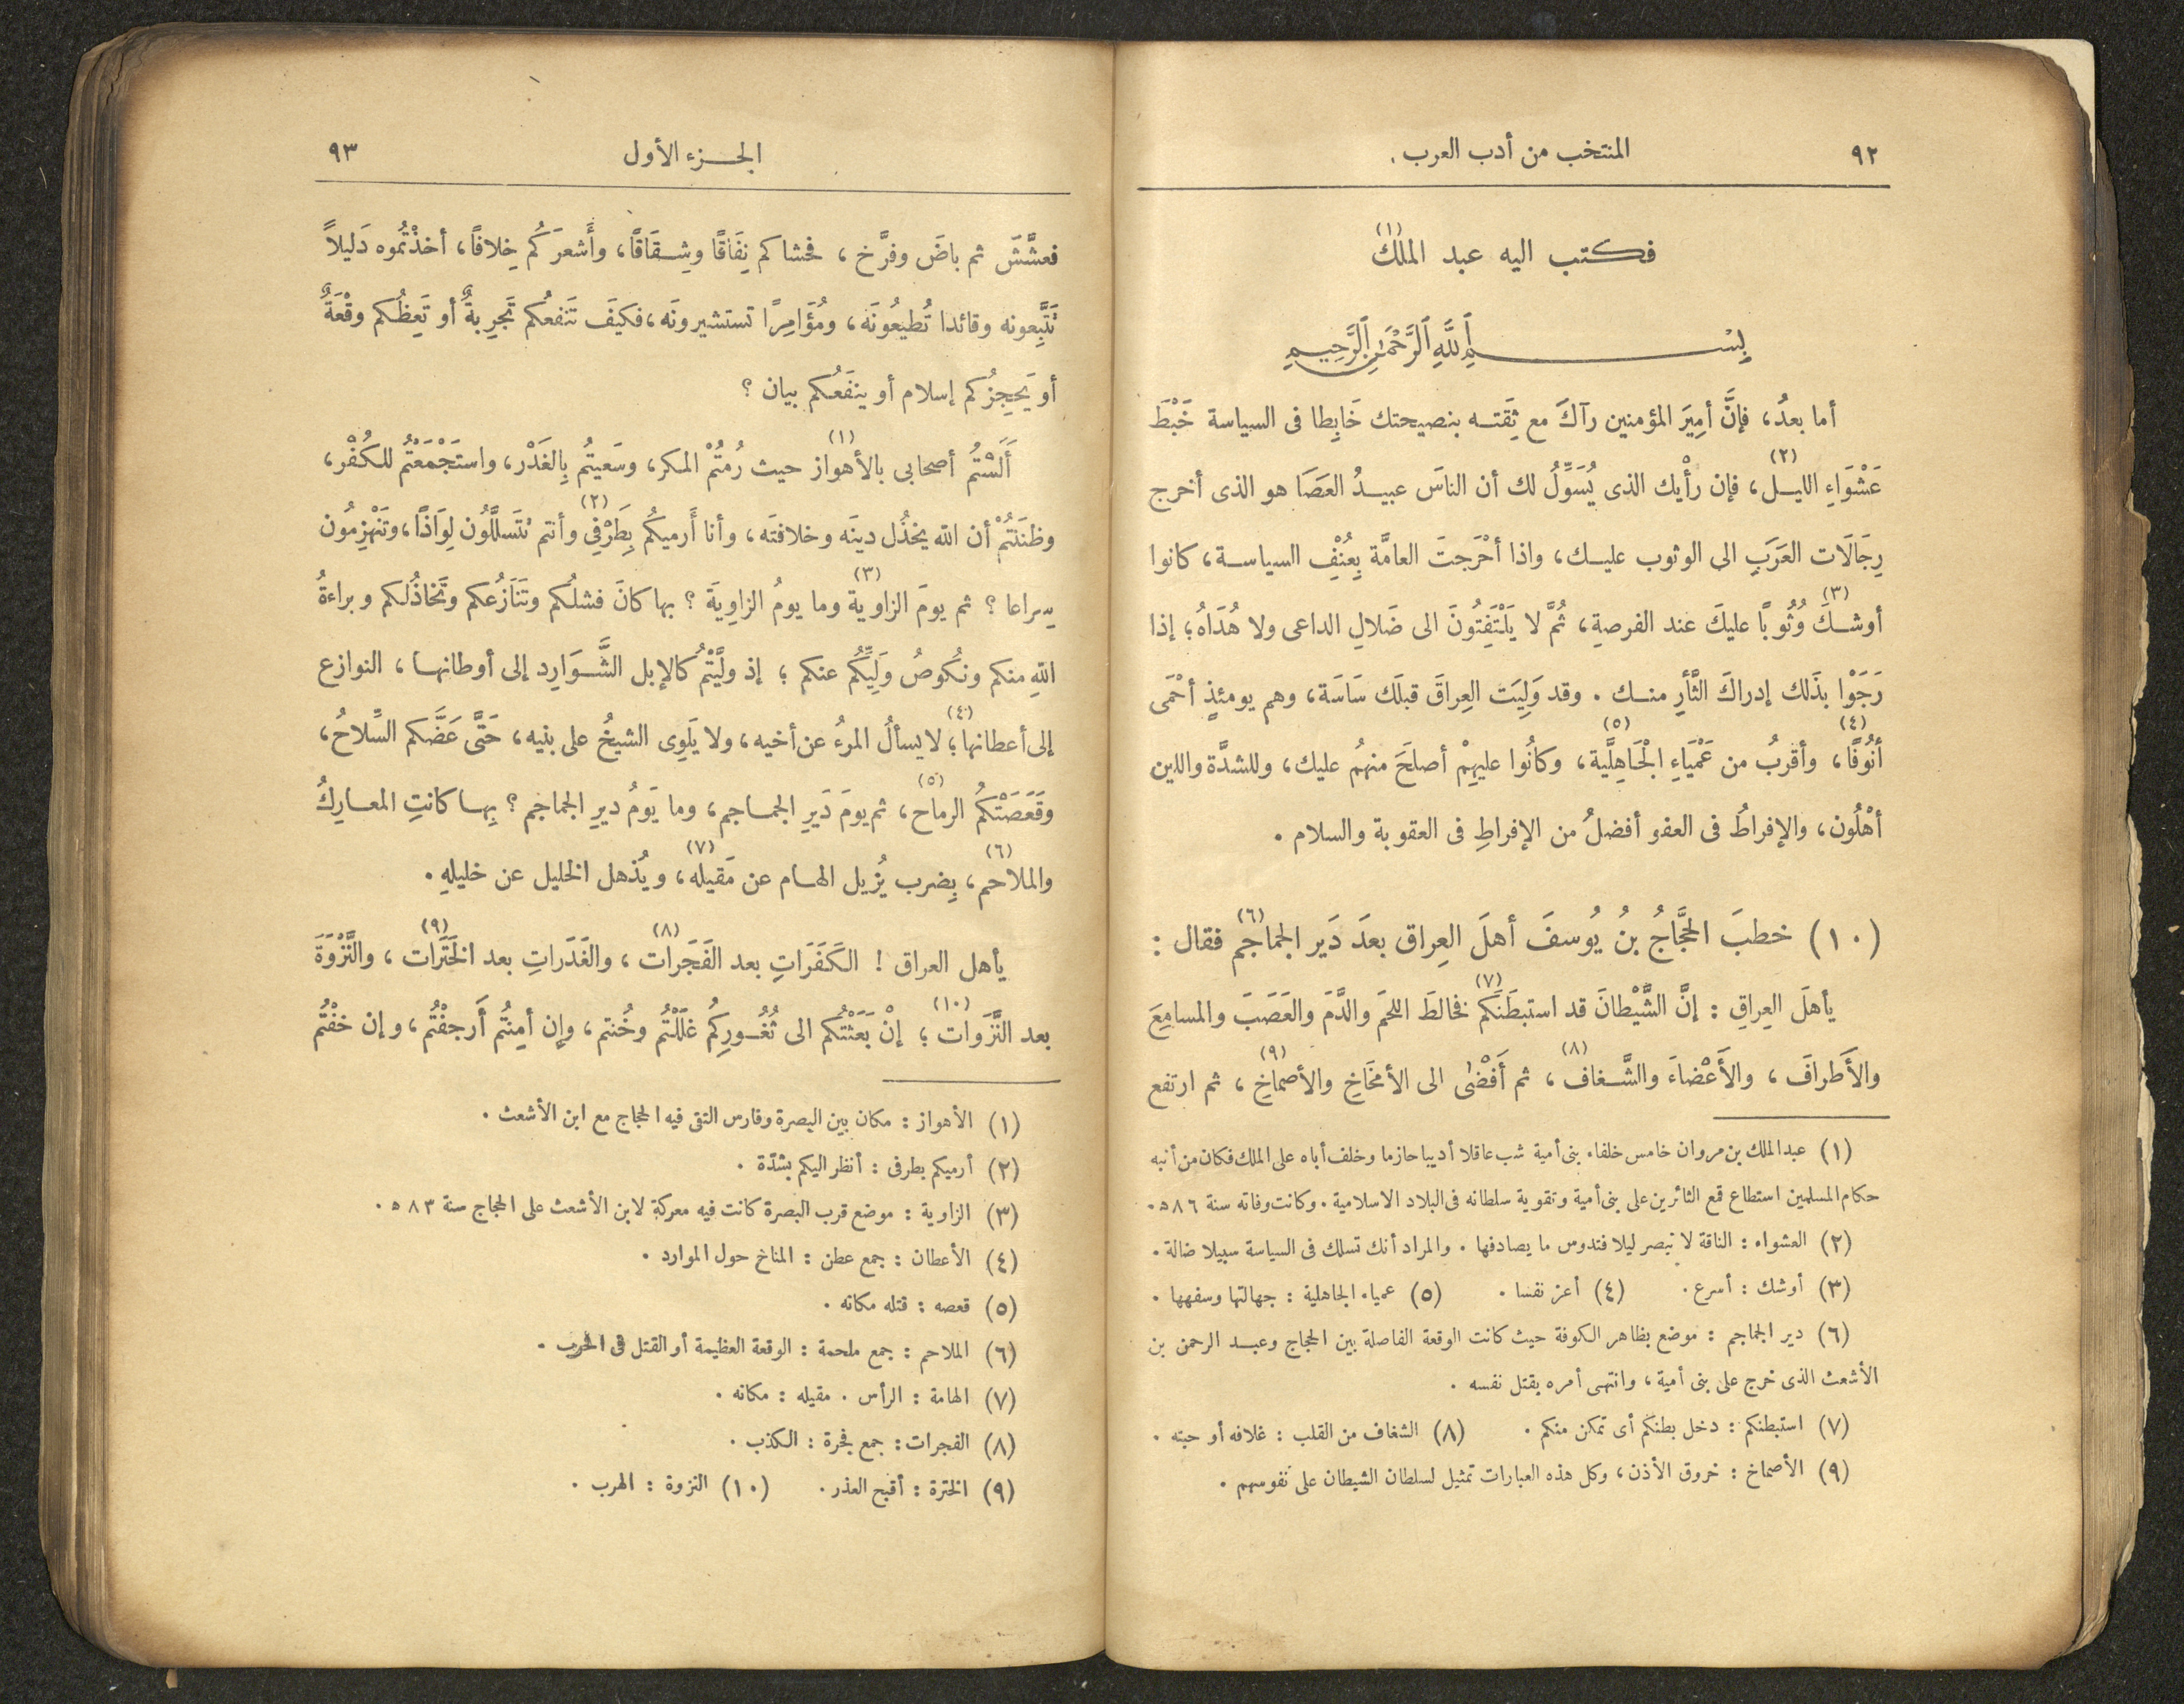 ٩٢
المنتخب من أدب العرب
فكتب اليه عبد الملك (١)
بِسْمِ ٱللهِ ٱلرَّحْمٰنِ ٱلرَّحِيمِ
أما بعدُ، فإنَّ أمِيرَ المؤمنين رآكَ مع ثِقَته بنصيحتك خَابِطا فى السياسة خَبْطَ
عَشْوَاءِ الليل (٢)، فإن رأْيك الذى يُسَوِّلُ لك أن الناسَ عبيدُ العَصَا هو الذى أخرج
رِجَالَات العَرَبِ الى الوثوب عليك، واذا أحْرَجتَ العامَّة بِعُنْفِ السياسة، كانوا
أوشكَ (٣) وُثُوبًا عليكَ عند الفرصةِ، ثُمَّ لا يَلْتَفِتُونَ الى ضَلالِ الداعى ولا هُدَاهُ؛ إذا
رَجَوْا بذَلك إدراكَ الثَّأرِ منك . وقد وَلِيَت العِراقَ قبلَك سَاسَة، وهم يومئذٍ أحْمَى
أنُوفًا (٤)، وأقربُ من عَمْيَاءِ الْجَاهِلِيَّة (٥)، وكانُوا عليهِمْ أصلَحَ منهمُ عليك، وللشدَّة واللين
أهْلُون، والإفراطُ فى العفو أفضلُ من الإفراطِ فى العقوبة والسلام .
(١٠) خطبَ الحَجَّاجُ بنُ يُوسفَ أهلَ العِراق بعدَ دَير الجماجم (٦) فقال :
يأهلَ العِراقِ : إنَّ الشَّيْطانَ قد استبطَنَكم (٧) فخالطَ اللحمَ والدَّمَ والعَصَبَ والمسامِعَ
والأَطرافَ، والأَعْضاءَ والشَّغاف (٨)، ثم أَفْضَى الى الأمخَاخِ والأصماخِ (٩)، ثم ارتفع
(١) عبد الملك بن مروان خامس خلفاء بنى أمية شب عاقلا أديبا حازما وخلف أباه على الملك فكان من أنبه
حكام المسلمين استطاع قمع الثائرين على بنى أمية وتقوية سلطانه فى البلاد الاسلامية . وكانت وفاته سنة ٨٦ ه .
(٢) العشواء : الناقة لا تبصر ليلا فتدوس ما يصادفها . والمراد أنك تسلك فى السياسة سبيلا ضالة .
(٣) أوشك : أسرع . (٤) أعز نفسا . (٥) عمياء الجاهلية : جهالتها وسفهها .
(٦) دير الجماجم : موضع بظاهر الكوفة حيث كانت الوقعة الفاصلة بين الحجاج وعبد الرحمن بن
الأشعث الذى خرج على بنى أمية، وانتهى أمره بقتل نفسه .
(٧) استبطنكم : دخل بطنكم أى تمكن منكم . (٨) الشغاف من القلب : غلافه أو حبته .
(٩) الأصماخ : خروق الأذن، وكل هذه العبارات تمثيل لسلطان الشيطان على نفوسهم .
الجزء الأول
٩٣
فعشَّشَ ثم باضَ وفرَّخ، فحشاكم نِفَاقًا وشِقَاقًا، وأَشعرَكُم خِلافًا، أخذْتُموه دَليلاً
تَتَّبِعونه وقائدا تُطيعُونَه، ومُؤَامِرًا تستشيرونَه، فكيَفَ تَنفعُكم تَجرِبةٌ أو تَعِظُكم وقْعَةٌ
أو يَحجِزُكم إسلام أو ينفَعُكم بيان ؟
أَلَسْتُم أصحابى بالأهواز (١) حيث رُمتُمْ المكر، وسَعيتُم بِالغَدْر، واستَجْمَعْتُم للكُفْر،
وظنَنتُمْ أن الله يخذُل دينَه وخلافتَه، وأنا أَرميكُم بِطَرْفِي (٢) وأنتم تَتَسلَّلُون لِوَاذًا، وتَنْهزِمُون
سِراعا ؟ ثم يومَ الزاوية (٣) وما يومُ الزاوِيةَ ؟ بها كانَ فشلُكم وتَنَازُعكم وتَخاذُلكم وبراءةُ
اللهِ منكم ونكُوصُ وَلِيِّكُم عنكم؛ إذ ولَّيْتُم كالإبل الشَّوَارِد إلى أوطانها، النوازع
إلى أعطانها (٤)؛ لا يسألُ المرءُ عن أخيه، ولا يَلوِى الشيخُ على بنيه، حَتَّى عَضَّكم السِّلاحُ،
وقَعَصَتْكُم الرماح (٥)، ثم يومَ دَيرِ الجماجم، وما يَومُ ديرِ الجماجم ؟ بِها كانتِ المعاركُ
والملاحم (٦)، بِضرب يُزيل الهام عن مَقيله (٧)، ويُذهل الخليل عن خليلهِ .
يأهل العراق ! الكَفَرَاتِ بعد الفَجَرات (٨)، والغَدَراتِ بعد الخَتَرَات (٩)، والنَّزْوَةَ
بعد النَّزَوات (١٠)؛ إنْ بَعَثْتُكم الى ثُغُورِكُم غلَلْتُم وخُنتم، وإن أمِنتُم أَرجفْتُم، وإن خفْتُم
(١) الأهواز : مكان بين البصرة وفارس التقى فيه الحجاج مع ابن الأشعث .
(٢) أرميكم بطرفى : أنظر اليكم بشدّة .
(٣) الزاوية : موضع قرب البصرة كانت فيه معركة لابن الأشعث على الحجاج سنة ٨٣ ه .
(٤) الأعطان : جمع عطن : المناخ حول الموارد .
(٥) قعصه : قتله مكانه .
(٦) الملاحم : جمع ملحمة : الوقعة العظيمة أو القتل فى الحرب .
(٧) الهامة : الرأس . مقيله : مكانه .
(٨) الفجرات : جمع فجرة : الكذب .
(٩) الخترة : أقبح الغدر . (١٠) النزوة : الهرب .